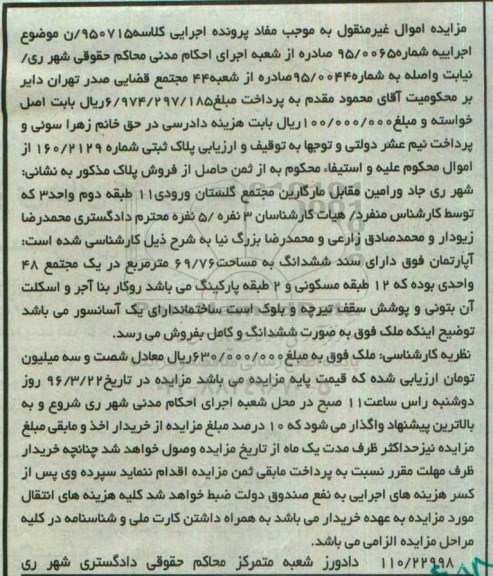 مزایده اموال غیرمنقول به موجب مفاد پرونده اجرایی کلاسه۹۵۰۷۱۵/ن موضوع
اجراییه شماره۹۵/۰۰۶۵ صادره از شعبه اجرای احکام مدنی محاکم حقوقی شهر ری/
نیابت واصله به شماره۹۵/۰۰۴۴صادره از شعبه۴۴ مجتمع قضایی صدر تهران دایر
بر محکومیت آقای محمود مقدم به پرداخت مبلغ۶/۹۷۴/۲۹۷/۱۸۵ریال بابت اصل
خواسته و مبلغ۱۰۰/۰۰۰/۰۰۰ریال بابت هزینه دادرسی در حق خانم زهرا سونی و
پرداخت نیم عشر دولتی و توجها به توقیف و ارزیابی پلاک ثبتی شماره ۱۶۰/۲۱۲۹ از
اموال محکوم علیه و استیفاء محکوم به از ثمن حاصل از فروش پلاک مذکور به نشانی:
شهر ری جاد ورامین مقابل مارگارین مجتمع گلستان ورودی۱۱ طبقه دوم واحد۳ که
توسط کارشناس منفرد/ هیات کارشناسان ۳ نفره /۵ نفره محترم دادگستری محمدرضا
زیودار و محمدصادق زارعی و محمدرضا بزرگ نیا به شرح ذیل کارشناسی شده است:
آپارتمان فوق دارای سند ششدانگ به مساحت۶۹/۷۶ مترمربع در یک مجتمع ۴۸
واحدی بوده که ۱۲ طبقه مسکونی و ۲ طبقه پارکینگ می باشد روکار بنا آجر و اسکلت
آن بتونی و پوشش سقف تیرچه و بلوک است ساختماندارای یک آسانسور می باشد
توضیح اینکه ملک فوق به صورت ششدانگ و کامل بفروش می رسد.
نظریه کارشناسی: ملک فوق به مبلغ۶۳۰/۰۰۰/۰۰۰ریال معادل شصت و سه میلیون
تومان ارزیابی شده که قیمت پایه مزایده می باشد مزایده در تاریخ۹۶/۳/۲۲ روز
دوشنبه راس ساعت۱۱ صبح در محل شعبه اجرای احکام مدنی شهر ری شروع و به
بالاترین پیشنهاد واگذار می شود که ۱۰ درصد مبلغ مزایده از خریدار اخذ و مابقی مبلغ
مزایده نیزحداکثر ظرف مدت یک ماه از تاریخ مزایده وصول خواهد شد چنانچه خریدار
ظرف مهلت مقرر نسبت به پرداخت مابقی ثمن مزایده اقدام ننماید سپرده وی پس از
کسر هزینه های اجرایی به نفع صندوق دولت ضبط خواهد شد کلیه هزینه های انتقال
مورد مزایده به عهده خریدار می باشد به همراه داشتن کارت ملی و شناسنامه در کلیه
مراحل مزایده الزامی می باشد.
۱۱۰/۲۲۹۹۸ دادورز شعبه متمرکز محاکم حقوقی دادگستری شهر ری